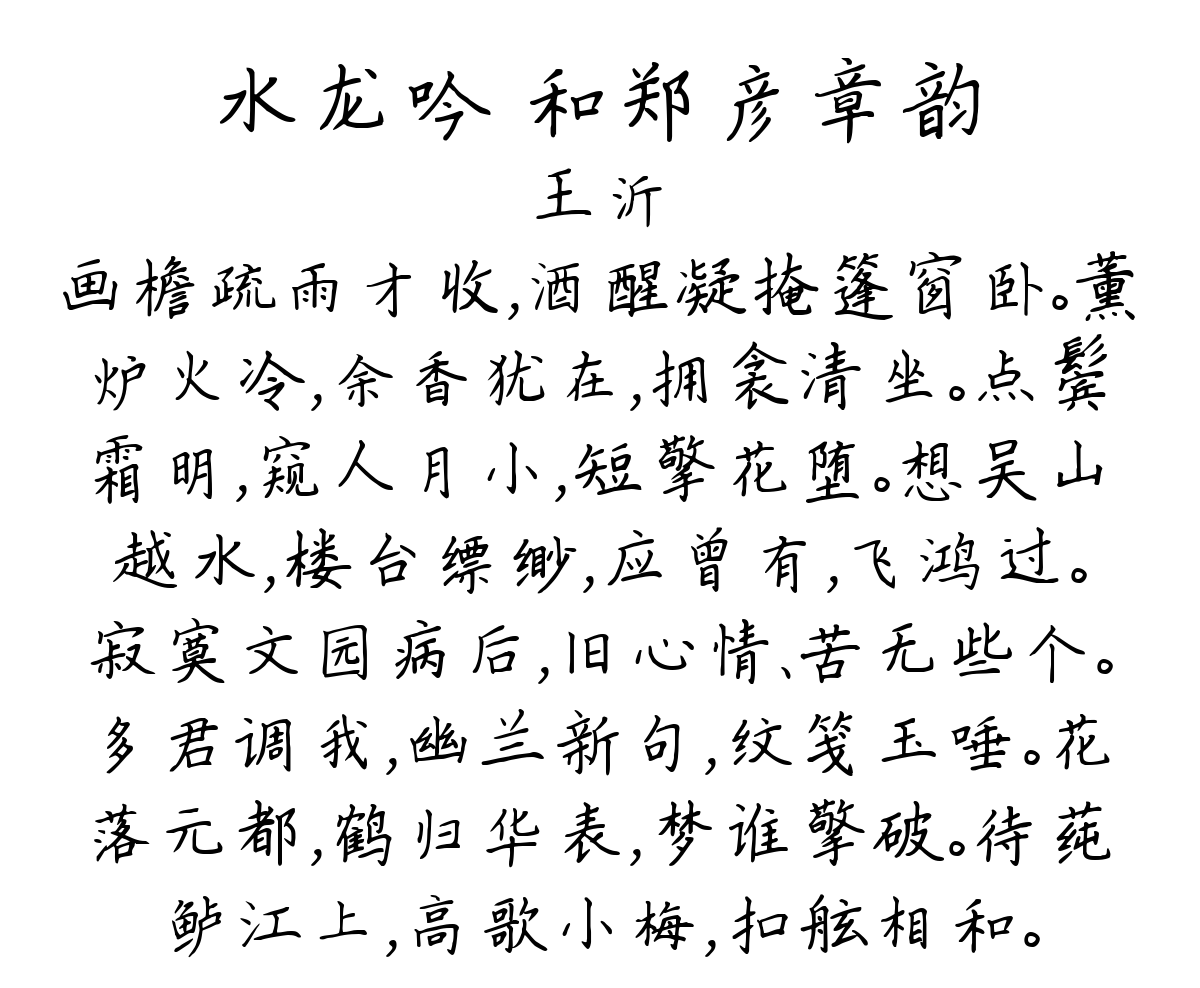 水龙吟 和郑彦章韵
王沂
画檐疏雨才收,酒醒凝掩篷窗卧。薰
炉火冷,余香犹在,拥衾清坐。点鬓
霜明,窥人月小,短擎花堕。想吴山
越水,楼台缥缈,应曾有,飞鸿过。
寂寞文园病后,旧心情、苦无些个。
多君调我,幽兰新句,纹笺玉唾。花
落元都,鹤归华表,梦谁擎破。待莼
鲈江上,高歌小梅,扣舷相和。